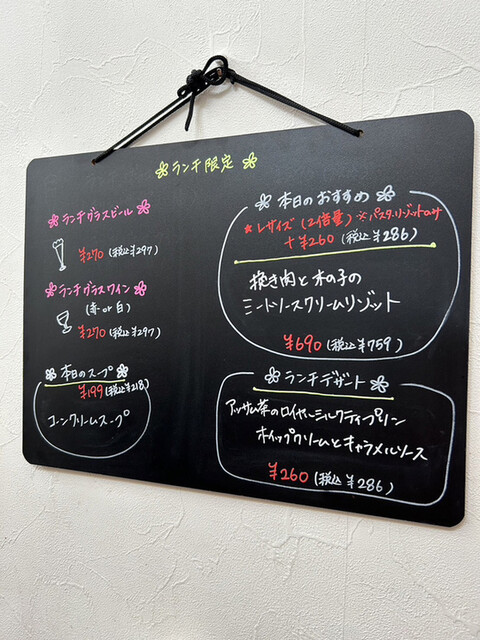 ランチ限定
ランチグラスビール
¥270(税込¥297)
ランチグラスワイン
(赤or白)
¥270(税込¥297)
本日のスープ
¥199(税込¥218)
コーンクリームスープ
本日のおすすめ
★Lサイズ(2倍量)※パスタ、リゾットのみ
+¥260(税込¥286)
挽き肉と木の子の
ミートソースクリームリゾット
¥690(税込¥759)
ランチデザート
アッサム茶のロイヤルミルクティプリン
ホイップクリームとキャラメルソース
¥260(税込¥286)